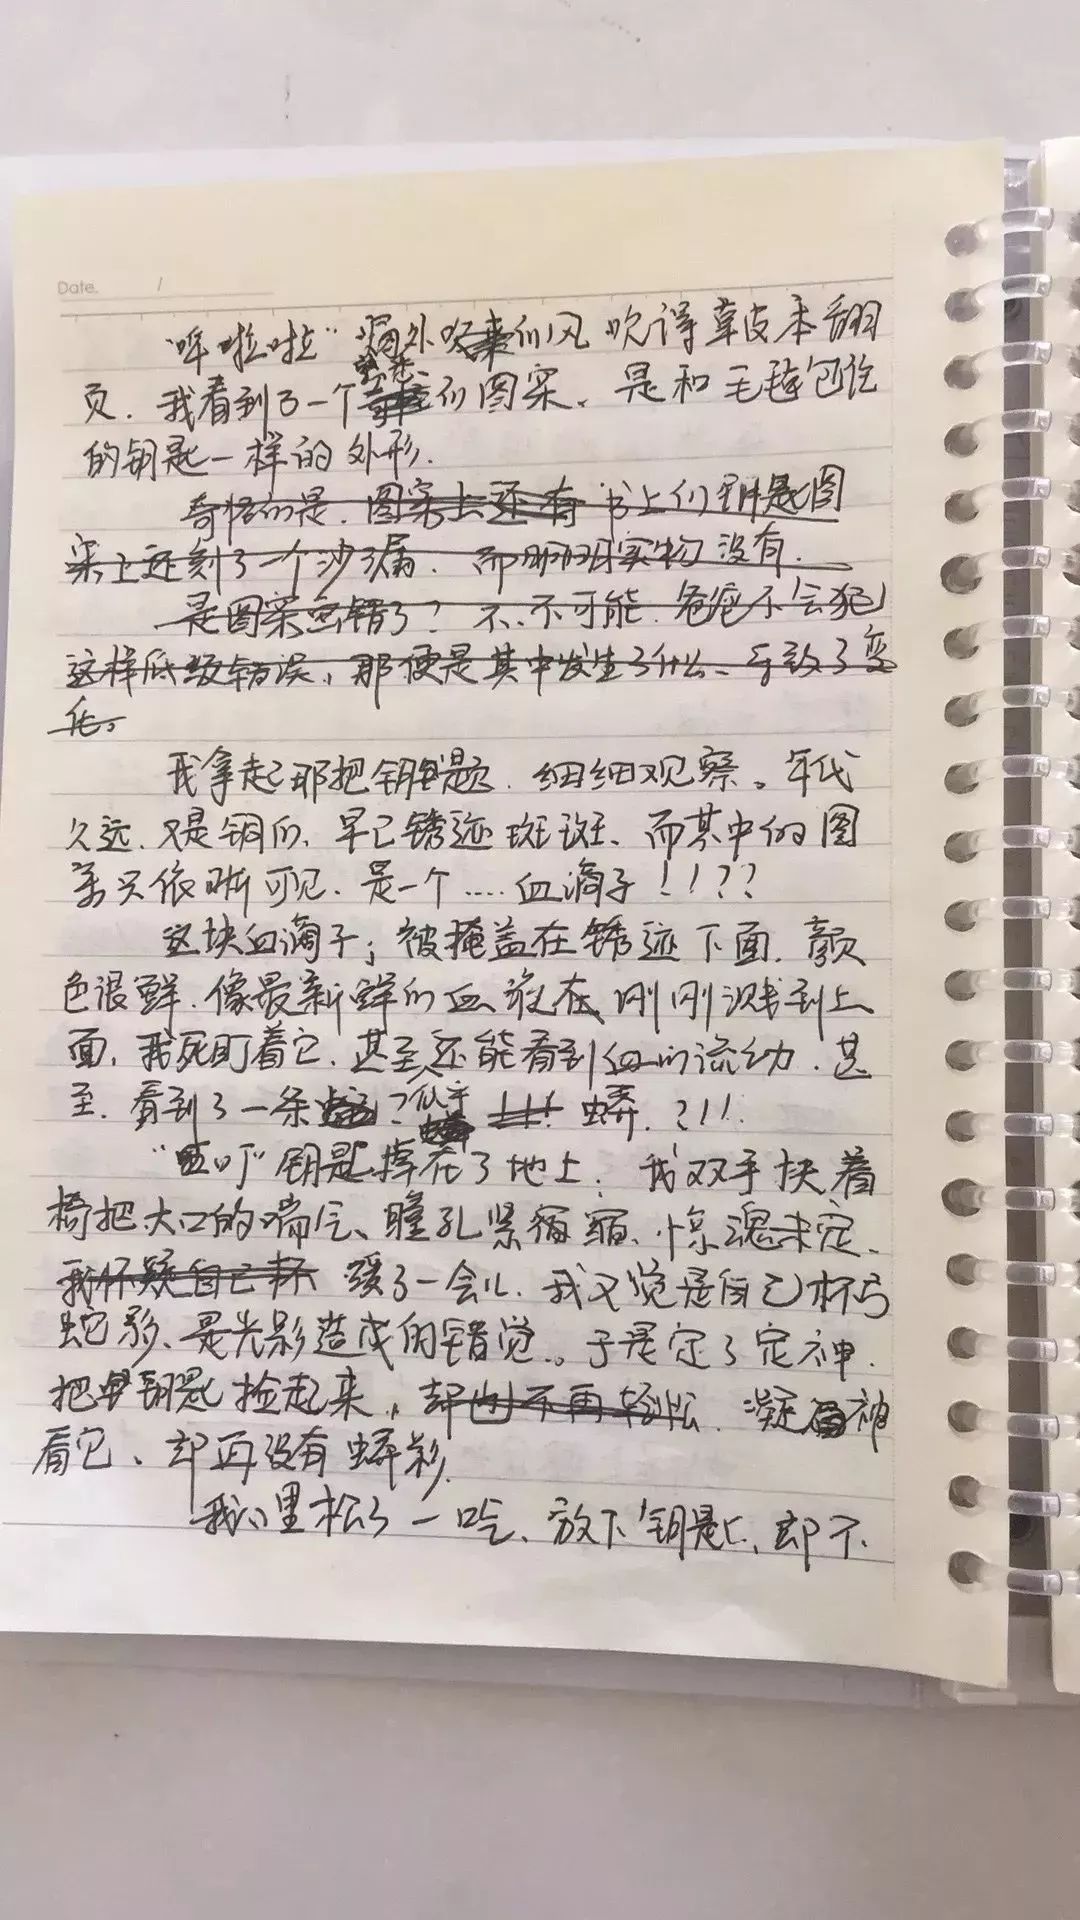 Date. /
“哗啦啦”窗外吹来的风吹得草皮本翻
页.我看到了一个熟悉的图案.是和毛毡包住
的钥匙一样的外形.
奇怪的是.图案上还有书上的钥匙图
案上还刻了一个沙漏.而明明实物没有.
是图案画错了?不.不可能.爸爸不会犯
这样低级错误,那便是其中发生了什么、导致了变
化。
我拿起那把钥匙.细细观察。年代
久远.又是铜的.早已锈迹斑斑、而其中的图
案只依晰可见.是一个……血滴子!!??
这块血滴子;被掩盖在锈迹下面.颜
色很鲜.像最新鲜的血液在刚刚溅到上
面.我死盯着它.甚至还能看到血的流动.甚
至.看到了一条?似乎!!!蟒.?!!
钥匙掉在了地上.我双手扶着
椅把大口的喘气、瞳孔紧缩、惊魂未定、
我怀疑自己杯缓了一会儿.我又觉是自己杯弓
蛇影、是光影造成的错觉.。于是定了定神.
把钥匙捡起来,却也不再轻松.凝神
看它、却再没有蟒影.
我心里松了一口气、放下钥匙、却不